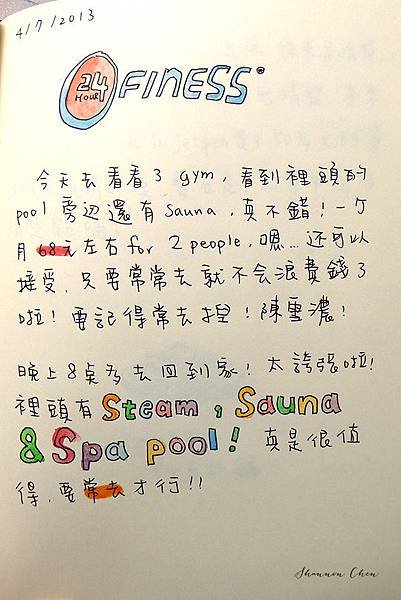 4/7/2013
24 HOUR FINESS®
今天去看看3 gym，看到裡頭的
pool旁边還有Sauna，真不錯！一个
月68元左右for 2 people，嗯…还可以
接受，只要常常去就不会浪費錢了
啦！要記得常去捏！陳雪濃！
晚上8點多去回到家！太誇張啦！
裡頭有Steam，Sauna
&Spa pool！真是很值
得，要常去才行！！
Shannon Chen